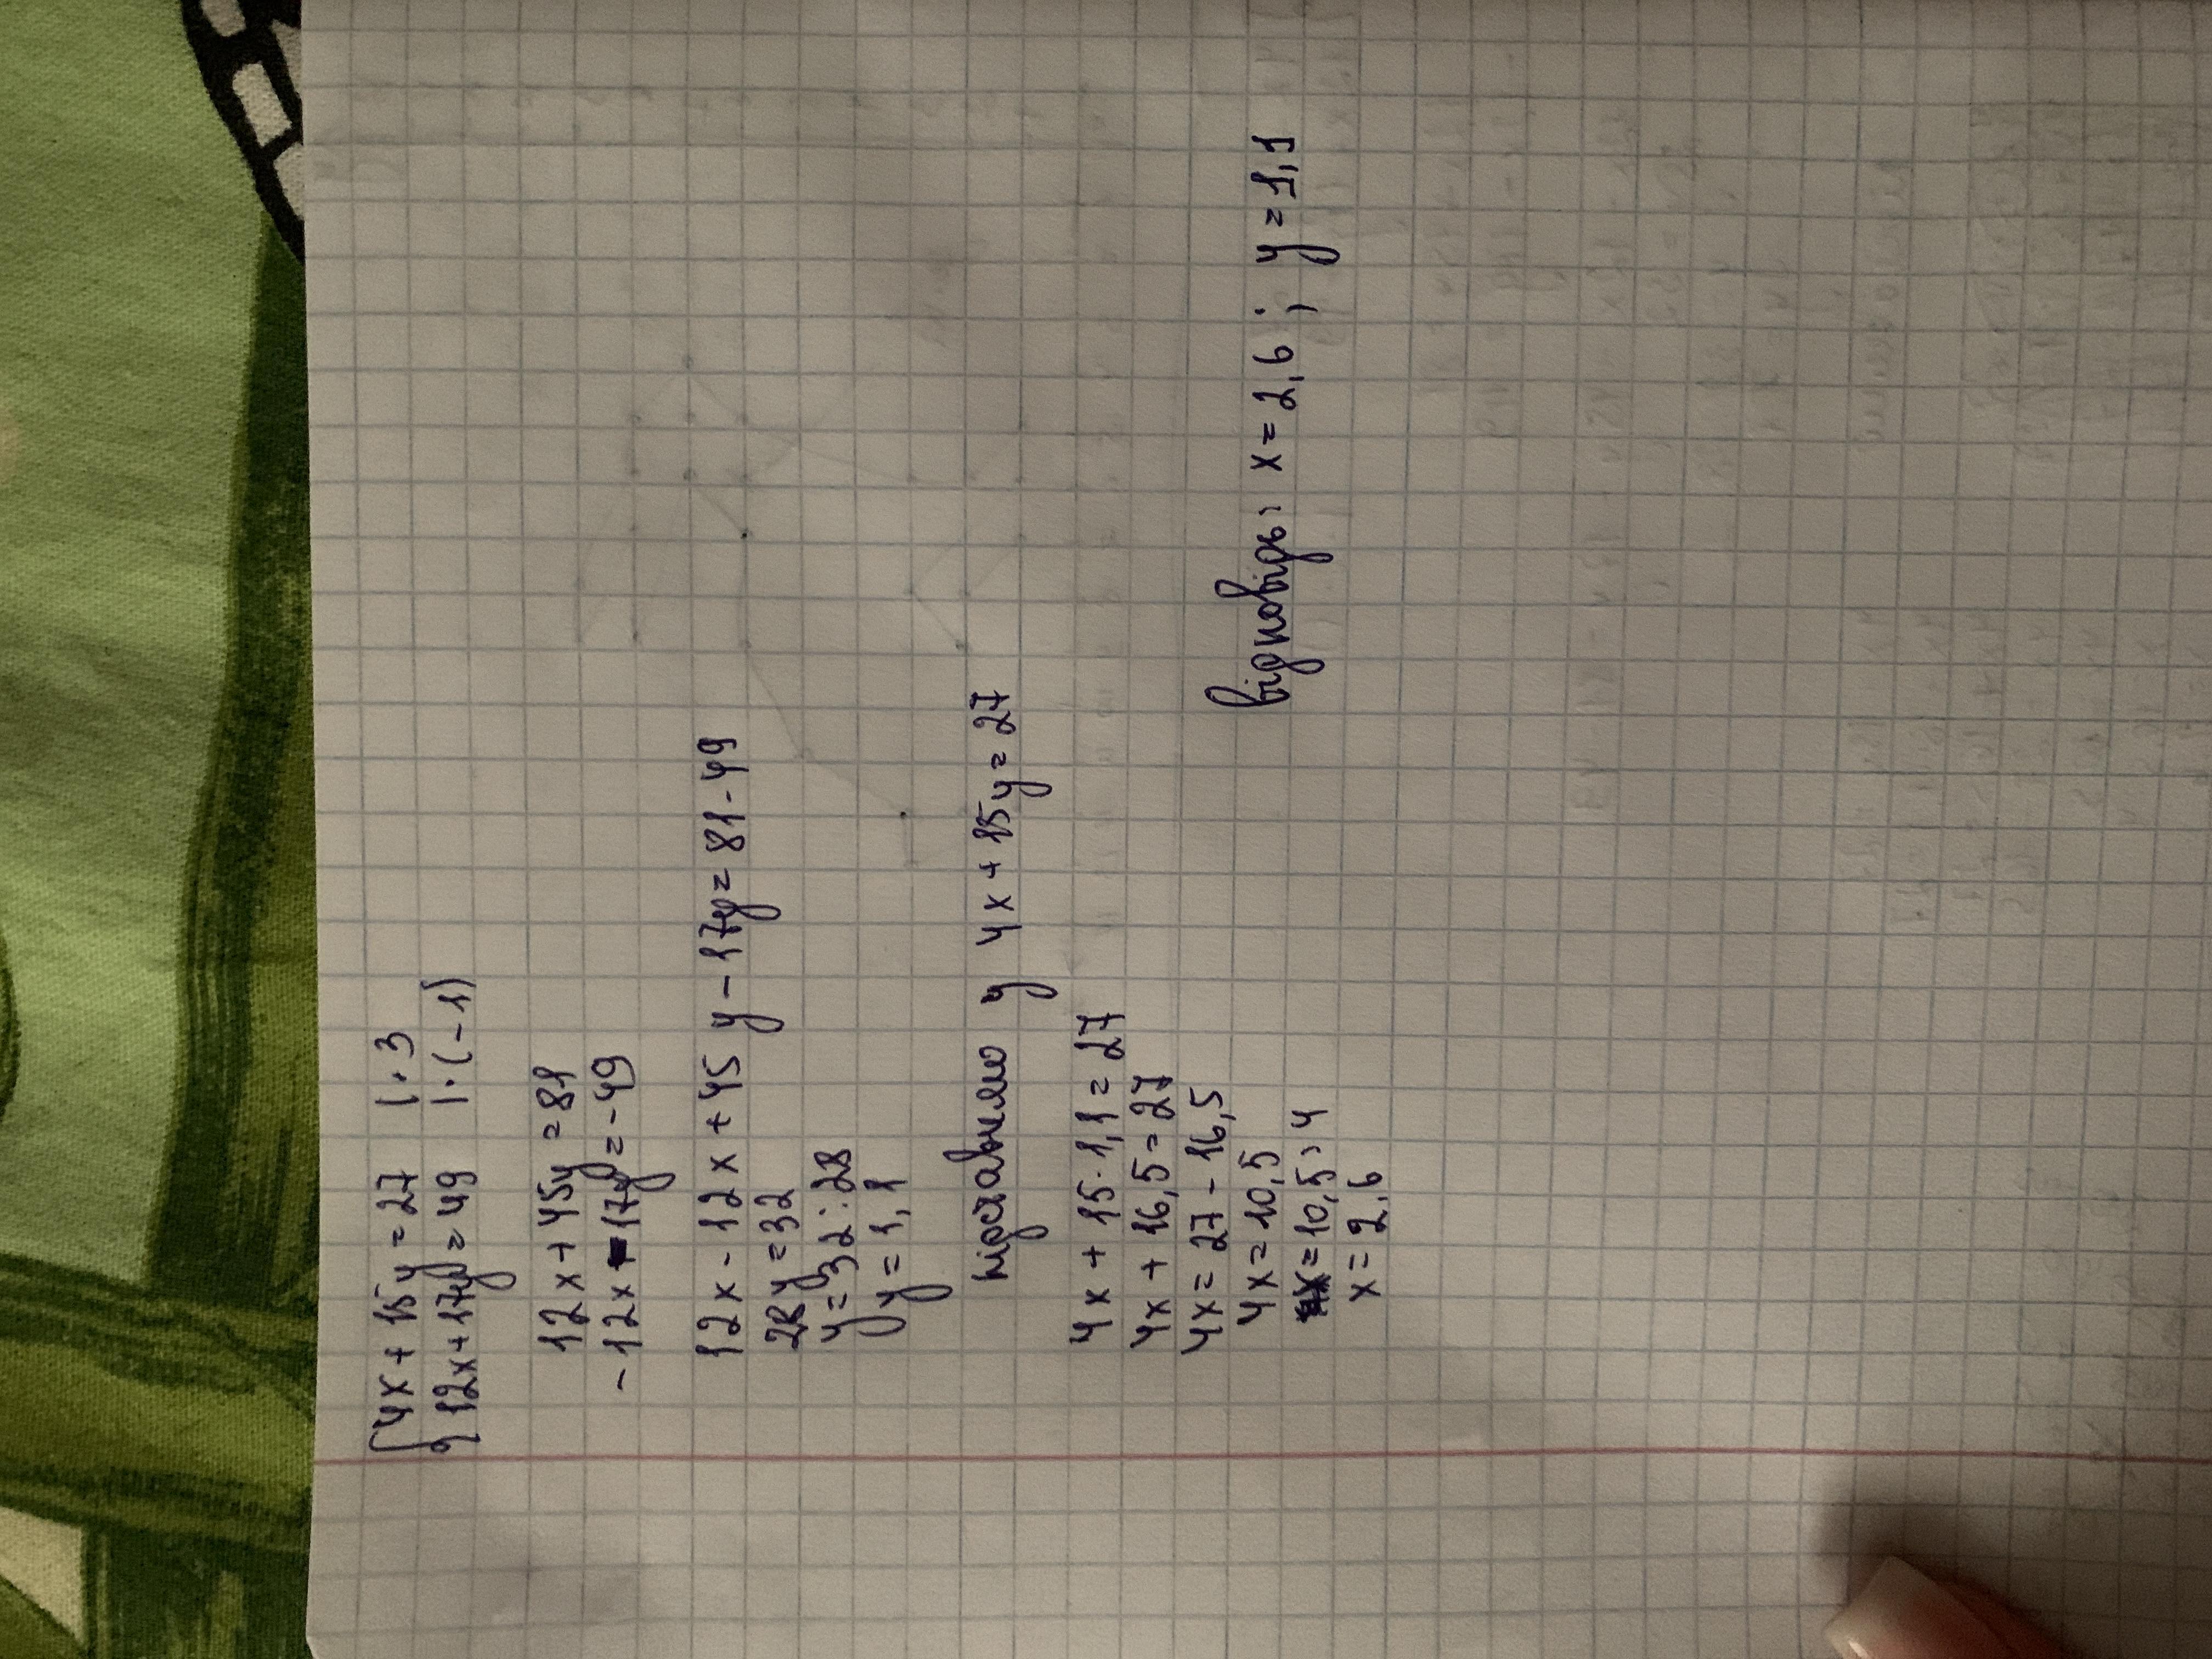 {4x + 15y = 27 | · 3
{12x + 17y = 49 | · (-1)
12x + 45y = 81
-12x - 17y = -49
12x - 12x + 45y - 17y = 81 - 49
28y = 32
y = 32 : 28
y = 1,1
підставимо у 4x + 15y = 27
4x + 15 · 1,1 = 27
4x + 16,5 = 27
4x = 27 - 16,5
4x = 10,5
x = 10,5 : 4
x = 2,6
відповідь: x = 2,6 ; y = 1,1